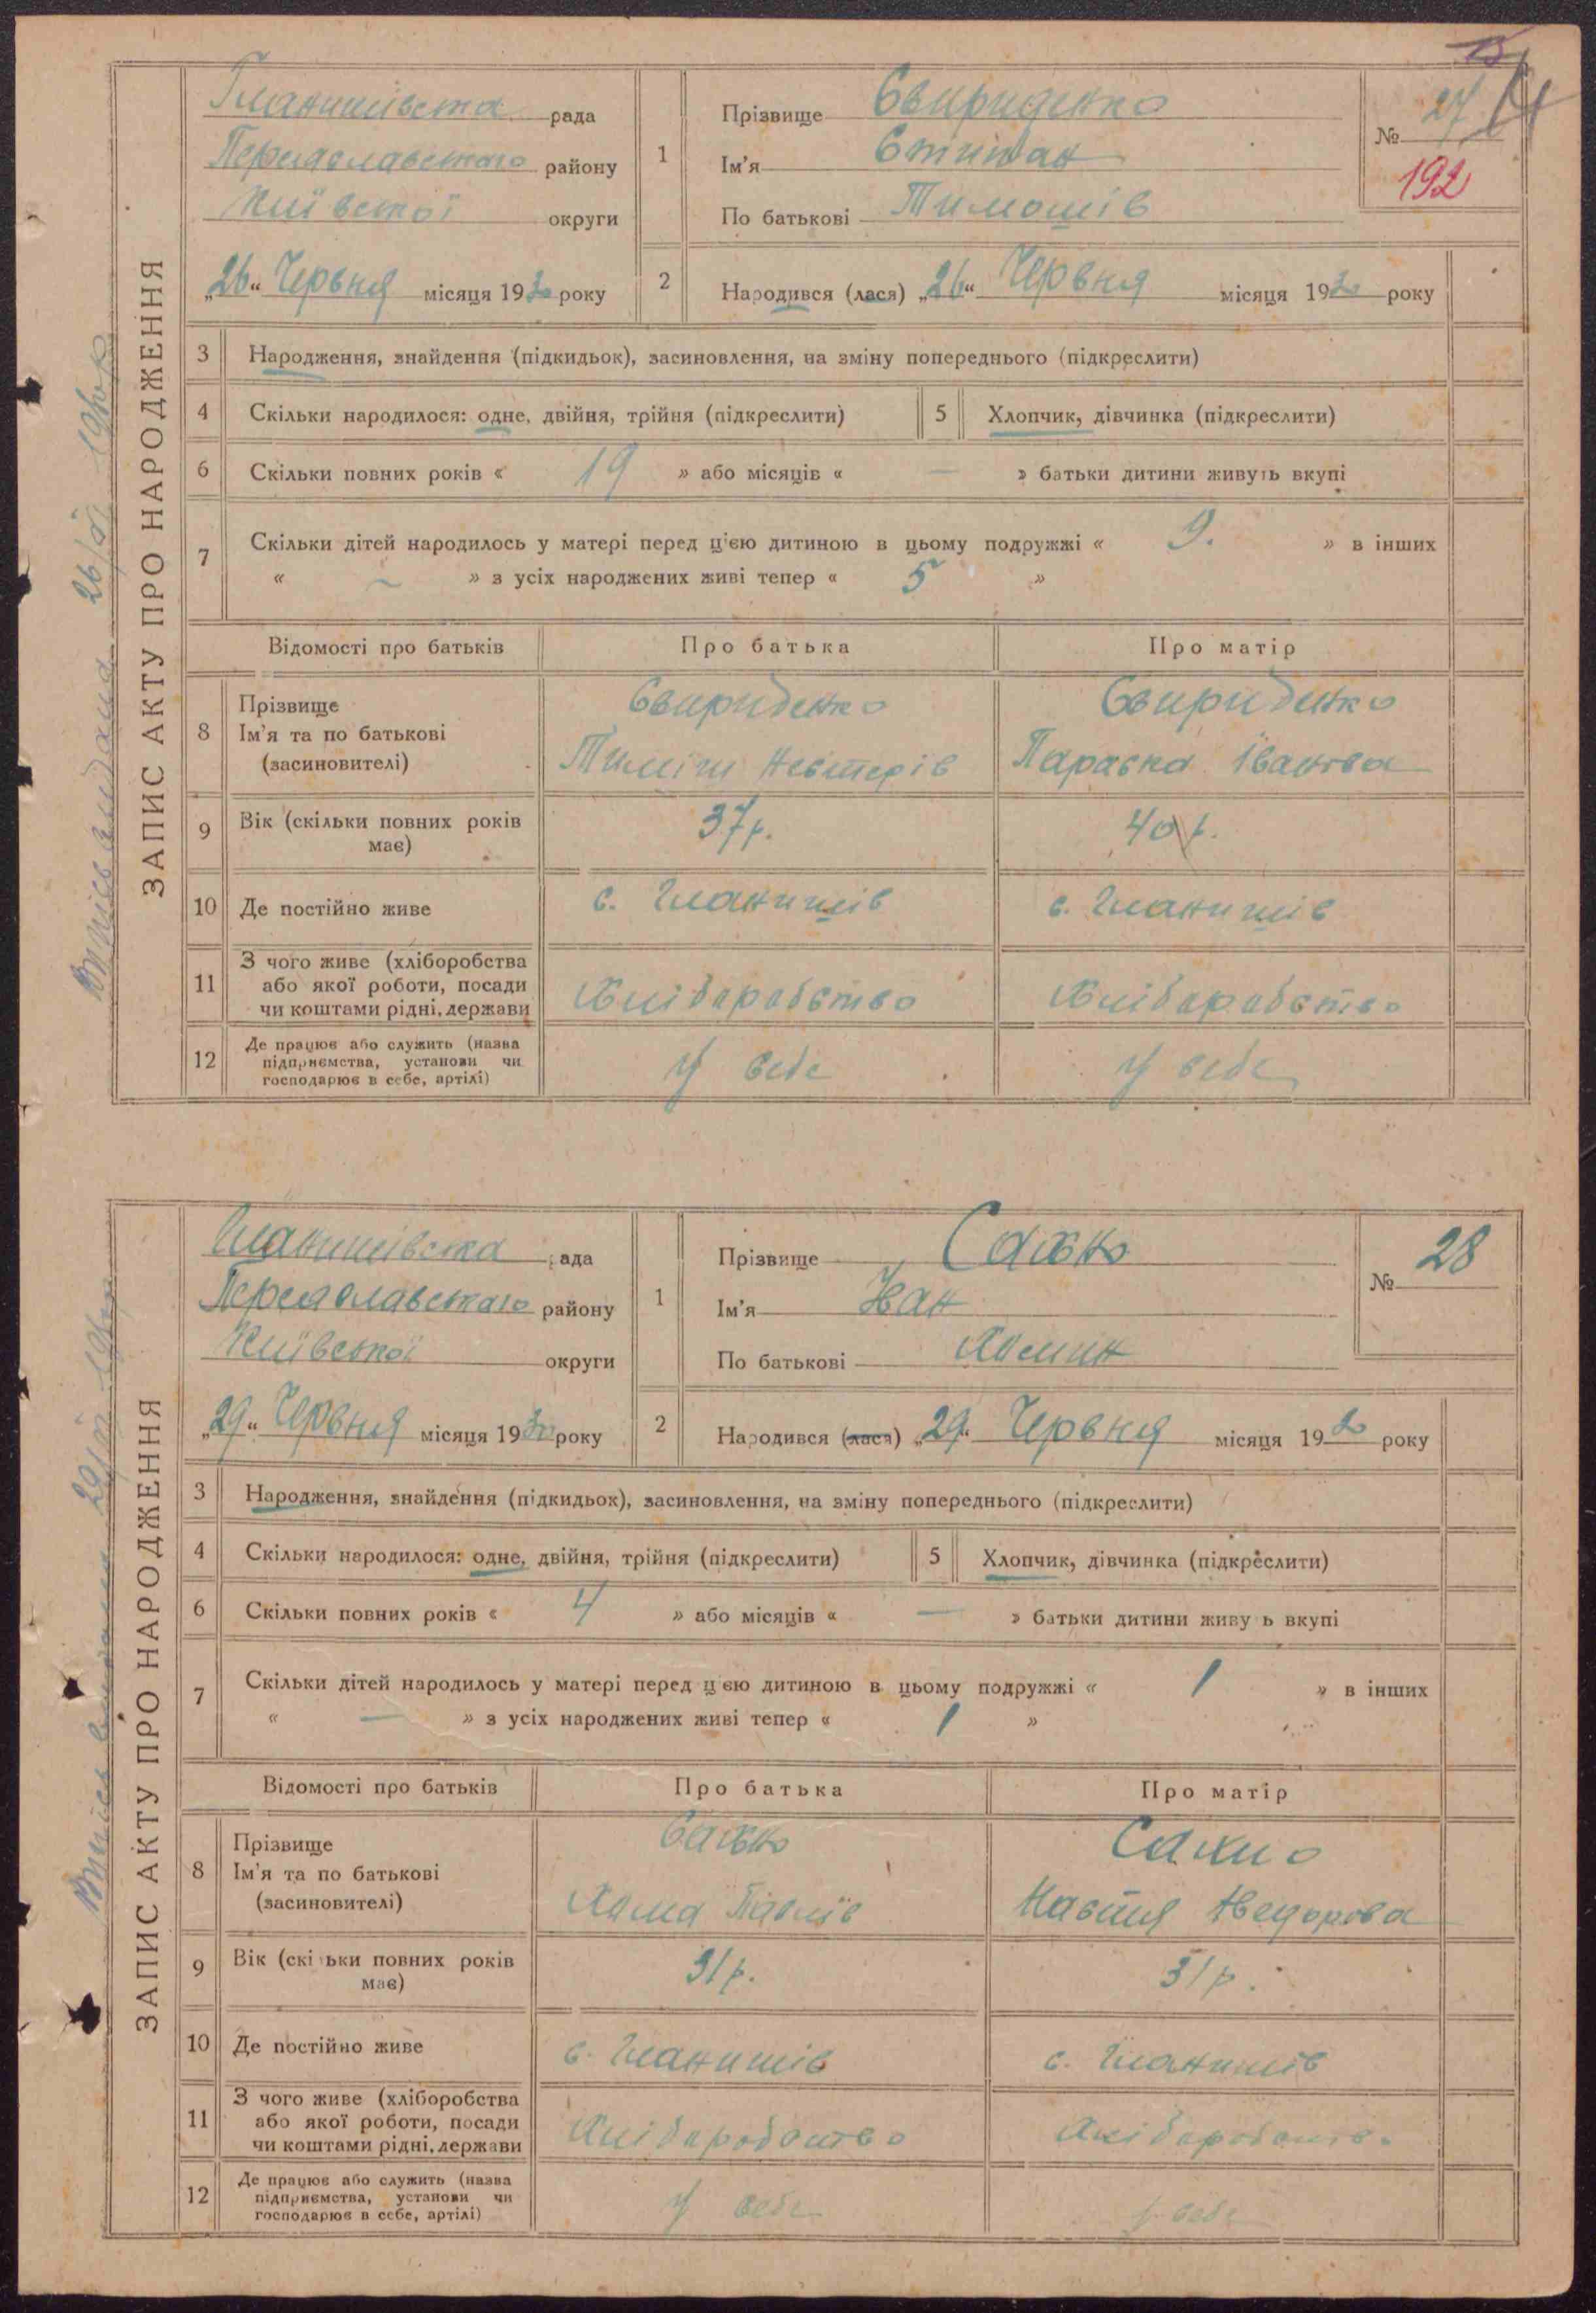 15
14
ЗАПИС АКТУ ПРО НАРОДЖЕННЯ
Гланишівська рада
Переяславського району
Київської округи
„26“ Червня місяця 1930 року
1
Прізвище Свириденко
Ім'я Степан
По батькові Тимошів
№ 27
192
2
Народився (лася) „26“ Червня місяця 1930 року
3 Народження, знайдення (підкидьок), засиновлення, на зміну попереднього (підкреслити)
4 Скільки народилося: одне, двійня, трійня (підкреслити) 5 Хлопчик, дівчинка (підкреслити)
6 Скільки повних років « 19 » або місяців « — » батьки дитини живуть вкупі
7 Скільки дітей народилось у матері перед ц'єю дитиною в цьому подружжі « 9. » в інших
« ~ » з усіх народжених живі тепер « 5 »
Відомості про батьків Про батька Про матір
8 Прізвище
Ім'я та по батькові
(засиновителі)
Свириденко
Тиміш Нестерів
Свириденко
Параска Іванова
9 Вік (скільки повних років
має)
37 р. 40 р.
10 Де постійно живе с. Гланишів с. Гланишів
11 З чого живе (хліборобства
або якої роботи, посади
чи коштами рідні, держави
Хліборобство Хліборобство
12 Де працює або служить (назва
підприємства, установи чи
господарює в себе, артілі)
У себе У себе
ЗАПИС АКТУ ПРО НАРОДЖЕННЯ
Гланишівська рада
Переяславського району
Київської округи
„29“ Червня місяця 1930 року
1
Прізвище Сахно
Ім'я Іван
По батькові Хомин
№ 28
2
Народився (лася) „29“ Червня місяця 1930 року
3 Народження, знайдення (підкидьок), засиновлення, на зміну попереднього (підкреслити)
4 Скільки народилося: одне, двійня, трійня (підкреслити) 5 Хлопчик, дівчинка (підкреслити)
6 Скільки повних років « 4 » або місяців « — » батьки дитини живу ь вкупі
7 Скільки дітей народилось у матері перед ц єю дитиною в цьому подружжі « 1 » в інших
« — » з усіх народжених живі тепер « 1 »
Відомості про батьків Про батька Про матір
8 Прізвище
Ім'я та по батькові
(засиновителі)
Сахно
Хома Павлів
Сахно
Настя Хведорова
9 Вік (скі ьки повних років
має)
31 р. 31 р.
10 Де постійно живе с. Гланишів с. Гланишів
11 З чого живе (хліборобства
або якої роботи, посади
чи коштами рідні, держави
Хліборобство Хліборобство
12 Де працює або служить (назва
підприємства, установи чи
господарює в себе, артілі)
У себе У себе